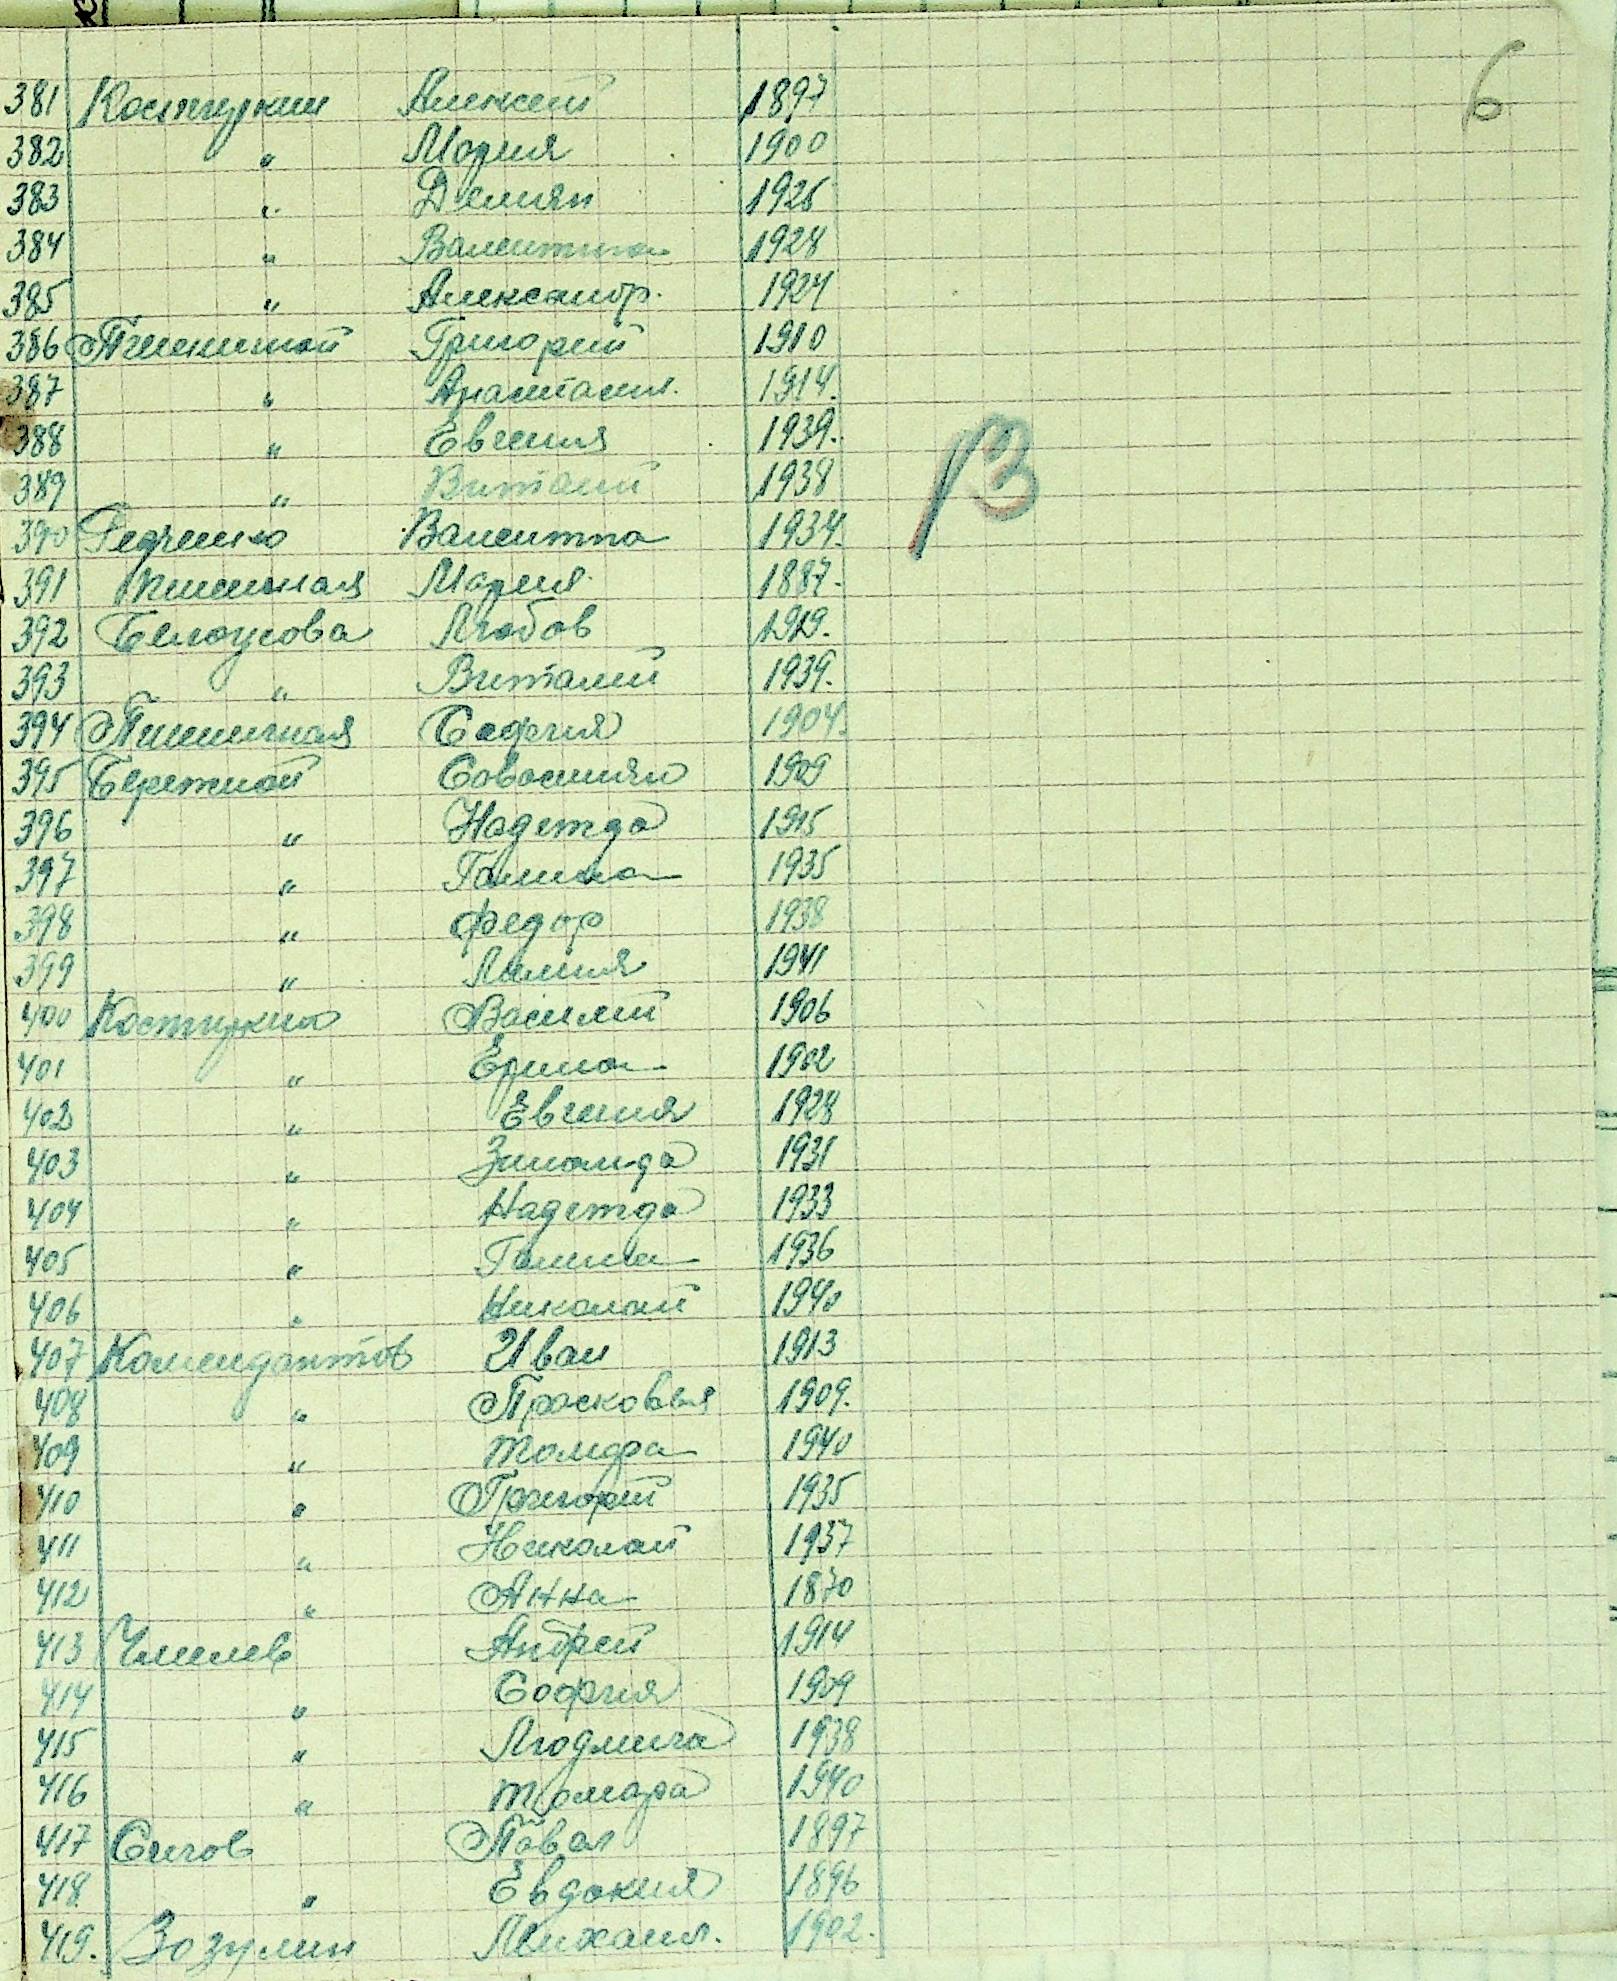 6
381 Костюкин Алексей 1897
382 " Мария 1900
383 " Демиян 1925
384 " Валентина 1928
385 " Александр. 1924
386 Пшеничной Григорий 1910
387 " Анастасия. 1914.
388 " Евгения 1939.
389 " Виталий 1938
390 Валентина 1934.
391 Пшеничная Мария 1887.
392 Белоусова Любов 1919.
393 " Виталий 1939.
394 Пшеничная София 1904.
395 Бережной Совостиян 1909
396 " Надежда 1915
397 " Галина 1935
398 " Федор 1938
399 " Лилия 1941
400 Костюкин Василий 1906
401 " Ерина 1902
402 " Евгения 1928
403 " Зинаида 1931
404 " Надежда 1933
405 " Галина 1936
406 " Николай 1940
407 Комендантов Иван 1913
408 " Прасковья 1909.
409 " Томара 1940
410 " Григорий 1935
411 " Николай 1937
412 " Анна 1870
413 Чмелев Андрей 1914
414 " София 1909
415 " Людмила 1938
416 " Томара 1940
417 Сигов Павел 1897
418 " Евдокия 1896
419. Зозулин Михаил. 1902.